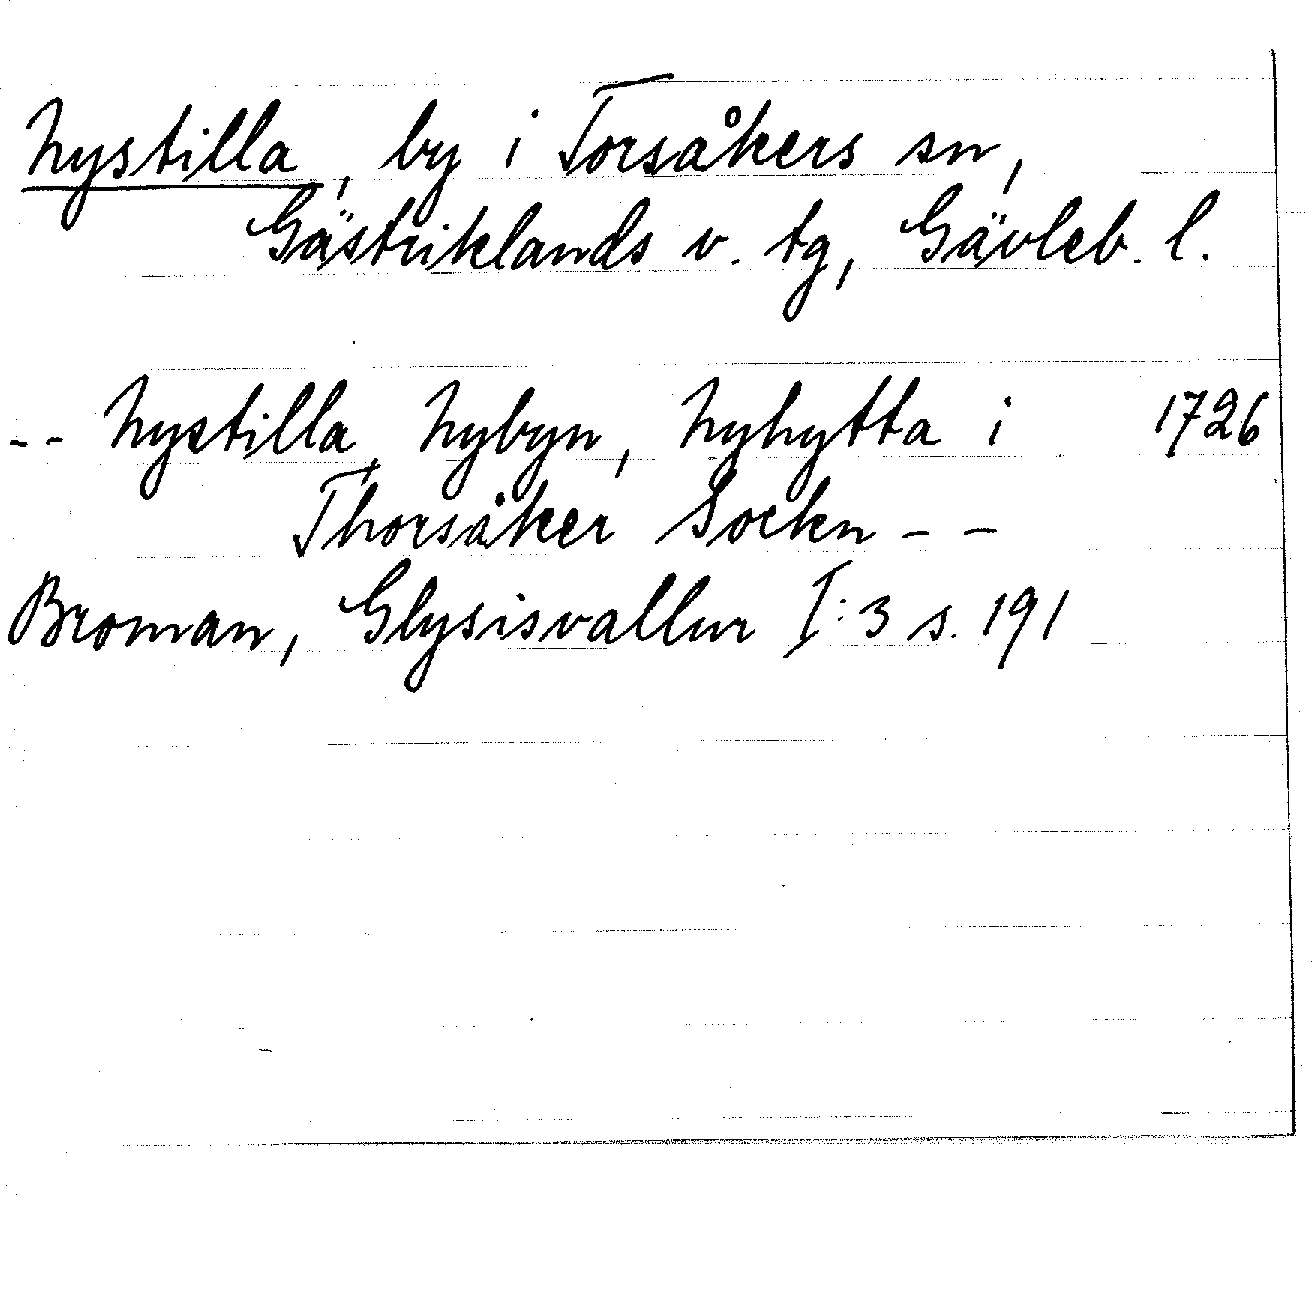 Nystilla, by i Torsåkers sn,
Gästriklands v. tg, Gävleb. l.
-- Nystilla, Nybyn, Nyhytta i 1726
Thorsåker Sockn --
Broman, Glysisvallur I:3 s. 191